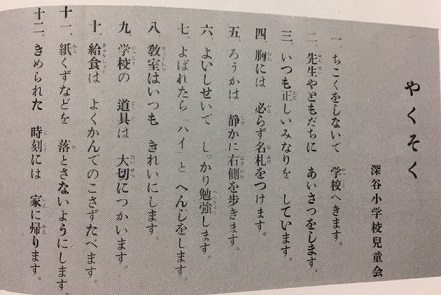 やくそく
深谷小学校児童会
一 ちこくをしないで 学校へきます。
二 先生やともだちに あいさつをします。
三 いつも正しいみなりを しています。
四 胸には 必らず名札をつけます。
五 ろうかは 静かに右側を歩きます。
六 よいしせいで しっかり勉強します。
七 よばれたら ハイ と へんじをします。
八 教室はいつも きれいにします。
九 学校の 道具は 大切につかいます。
十 給食は よくかんでのこさずたべます。
十一 紙くずなどを 落とさないようにします。
十二 きめられた 時刻には 家に帰ります。